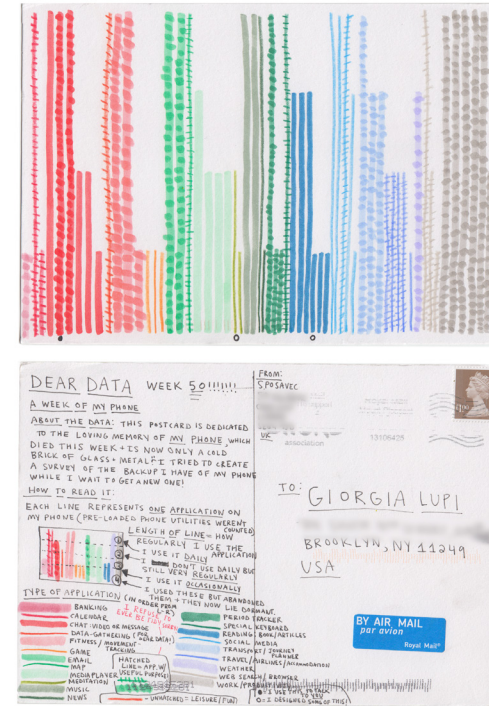 DEAR DATA WEEK 50!!!!!!!
A WEEK OF MY PHONE
ABOUT THE DATA: THIS POSTCARD IS DEDICATED
TO THE LOVING MEMORY OF MY PHONE, WHICH
DIED THIS WEEK + IS NOW ONLY A COLD
BRICK OF GLASS + METAL. I TRIED TO CREATE
A SURVEY OF THE BACKUP I HAVE OF MY PHONE
WHILE I WAIT TO GET A NEW ONE!
HOW TO READ IT:
EACH LINE REPRESENTS ONE APPLICATION ON
MY PHONE (PRE-LOADED PHONE UTILITIES WEREN'T
COUNTED)
LENGTH OF LINE = HOW
REGULARLY I USE THE
APPLICATION
I USE IT DAILY
I DON'T USE DAILY BUT
STILL VERY REGULARLY
I USE IT OCCASIONALLY
I USED THESE BUT ABANDONED
THEM + THEY NOW LIE DORMANT.
TYPE OF APPLICATION (IN ORDER FROM
L-R)
BANKING
CALENDAR
CHAT: VIDEO OR MESSAGE
DATA-GATHERING (FOR
DEAR DATA!)
FITNESS/MOVEMENT
TRACKING
GAME
EMAIL
MAP
MEDIA PLAYER
MEDITATION
MUSIC
NEWS
I REFUSE TO
EVER BE
HATCHED
LINE = APP. W/
USEFUL PURPOSE
= UNHATCHED = LEISURE/FUN
PERIOD TRACKER
SPECIAL KEYBOARD
READING: BOOK/ARTICLES
SOCIAL MEDIA
TRANSPORT/JOURNEY
PLANNER
TRAVEL/AIRLINES/ACCOMMODATION
WEATHER
WEB SEARCH/BROWSER
WORK/
= I USE THIS TO TALK
TO YOU
O = I DESIGNED SOME OF THIS
FROM:
S POSAVEC
UK
association
13106425
£1.00
TO: GIORGIA LUPI
BROOKLYN, NY 11249
USA
BY AIR MAIL
par avion
Royal Mail